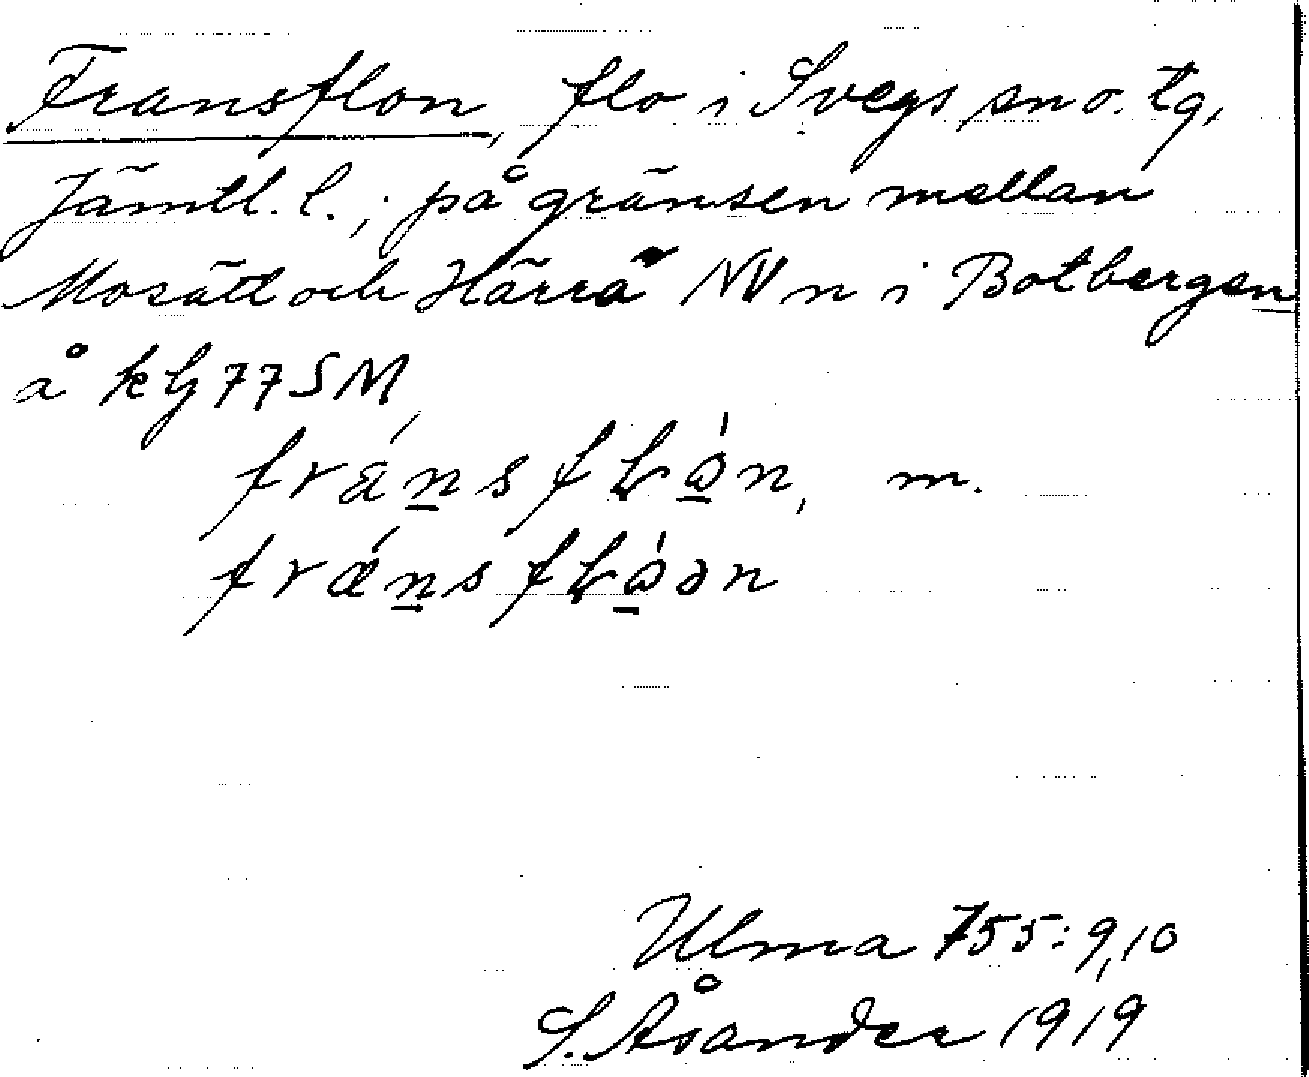 Fransflon, flo i Svegs sn o. tg,
Jämtl. l.; på gränsen mellan
Mosätt och Härrå NV n i Botbergen
å kbl 77 SM
fránsfʟòn, m.
frǽnsfʟòən
Ulma 755: 9, 10
S. Åsander 1919